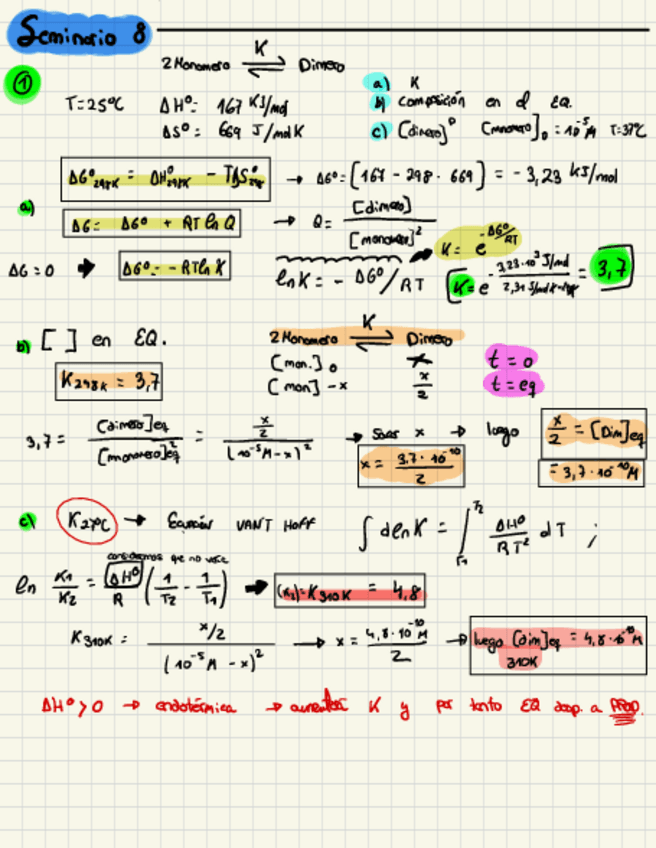 Seminario 8
K
2 Monomero ⇌ Dimero
①
T=25ºC ΔHº= 167 KJ/mol
ΔSº= 669 J/molK
a) K
b) composición en el EQ.
c) [dimero]º [monomero]₀ = 10⁻⁵M T=37ºC
ΔGº₂₉₈K = ΔHº₂₉₈K - TΔSº₂₉₈ → ΔGº= [167 - 298 · 669] = -3,23 KJ/mol
a)
ΔG= ΔGº + RT ln Q → Q= [dimero] / [monomero]²
ΔG=0 → ΔGº=-RTlnK
lnK = - ΔGº/RT
K= e^-ΔGº/RT
K= e^- 3,23·10³ J/mol = 3,7
b) [ ] en EQ.
K₂₉₈K = 3,7
K
2 Monomero ⇌ Dimero
[mon.]₀ t=0
[mon] -x x/2 t=eq
3,7= [dimero]eq / [monomero]²eq = x/2 / (10⁻⁵M-x)² → x → luego x/2 = [Dim]eq
x= 3,7·10⁻¹⁰ / 2
= 3,7·10⁻¹⁰M
c) → Ecuación VANT HOFF ∫ dlnK = ∫T₁^T₂ ΔHº/RT² dT ;
consideramos que no varía
ln K1/K2 = ΔHº/R (1/T2 - 1/T1) → K310K = 4,8
K310K = x/2 / (10⁻⁵M -x)² → x= 4,8·10⁻¹⁰M / 2 → luego [dim]eq = 4,8·10⁻¹⁰M
310K
ΔHº>0 → endotérmica → K y por tanto EQ desp. a PROD.